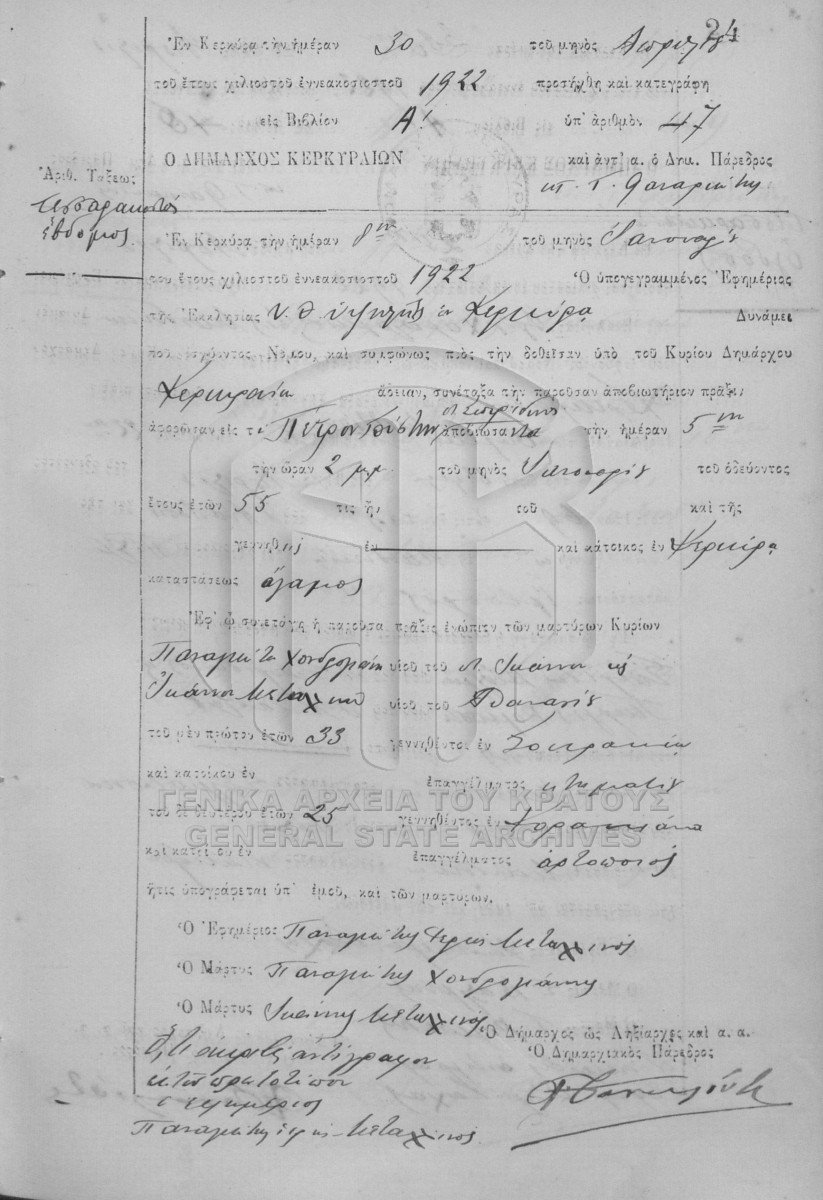 24
Ἐν Κερκύρᾳ τὴν ἡμέραν 30 τοῦ μηνὸς Ἀπριλίου
τοῦ ἔτους χιλιοστοῦ ἐννεακοσιοστοῦ 1922 προσήχθη καὶ κατεγράφη
εἰς Βιβλίον Α! ὑπ' ἀριθμὸν 47
Ο ΔΗΜΑΡΧΟΣ ΚΕΡΚΥΡΑΙΩΝ καὶ ἀντ' α. ὁ Δημ. Πάρεδρος
Ἀριθ. Τάξεως
τεσσαρακοστός
ἕβδομος
Ἐν Κερκύρᾳ τὴν ἡμέραν 8ην τοῦ μηνὸς Ἰανουαρίου
του ἔτους χιλιοστοῦ ἐννεακοσιοστοῦ 1922 Ὁ ὑπογεγραμμένος Ἐφημέριος
τῆς Ἐκκλησίας Υ. Θ. ἐν Κερκύρᾳ Δυνάμει
τοῦ ἰσχύοντος Νόμου, καὶ συμφώνως πρὸς τὴν δοθεῖσαν ὑπὸ τοῦ Κυρίου Δημάρχου
Κερκυραίων ἄδειαν, συνέταξα τὴν παροῦσαν ἀποβιωτήριον πρᾶξιν
Σπυρίδωνος
ἀφορῶσαν εἰς τὸ Πέτρον ἀποβιώσαντα τὴν ἡμέραν 5ην
τὴν ὥραν 2 μ.μ. τοῦ μηνὸς Ἰανουαρίου τοῦ ὁδεύοντος
ἔτους ἐτῶν 55 τις ἦν τοῦ καὶ τῆς
γεννηθ ἐν καὶ κάτοικος ἐν Κερκύρᾳ
καταστάσεως ἄγαμος
Ἐφ' ᾧ συνετάγη ἡ παροῦσα πρᾶξις ἐνώπιον τῶν μαρτύρων Κυρίων
Παναγιώτη Χονδρογιάννη υἱοῦ τοῦ Ἰωάννου κ
Ἰωάννου Μεταλληνοῦ υἱοῦ τοῦ Ἀθανασίου
τοῦ μὲν πρώτου ἐτῶν 33 γεννηθέντος ἐν Σωκρακίῳ
καὶ κατοίκου ἐν ἐπαγγέλματος κτηματίου
ΓΕΝΙΚΑ ΑΡΧΕΙΑ ΤΟΥ ΚΡΑΤΟΥΣ
τοῦ δὲ δευτέρου ἐτῶν 25 γεννηθέντος ἐν
GENERAL STATE ARCHIVES
καὶ κατοίκου ἐν ἐπαγγέλματος ἀρτοποιός
ἥτις ὑπογράφεται ὑπ' ἐμοῦ, καὶ τῶν μαρτύρων,
Ὁ Ἐφημέριος Παναγιώτης Ἱερεὺς Μεταλληνός
Ὁ Μάρτυς Παναγιώτης Χονδρογιάννης
Ὁ Μάρτυς Ἰωάννης Μεταλληνός
Ὁ Δήμαρχος ὡς Ληξίαρχος καὶ α. α.
Ὁ Δημαρχιακὸς Πάρεδρος
Ὅτι ἀκριβὲς ἀντίγραφον
ἐκ τοῦ πρωτοτύπου
ὁ ἐφημέριος
Παναγιώτης ἱερεὺς Μεταλληνός